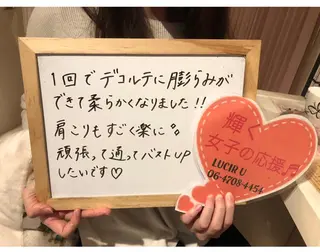 1回でデコルテに膨らみが
できて柔らかくなりました!!
肩こりもすごく楽に°。
頑張って通ってバストUP
したいです♡
輝く
女子の応援♬
LUCIR U
06-4708-4454